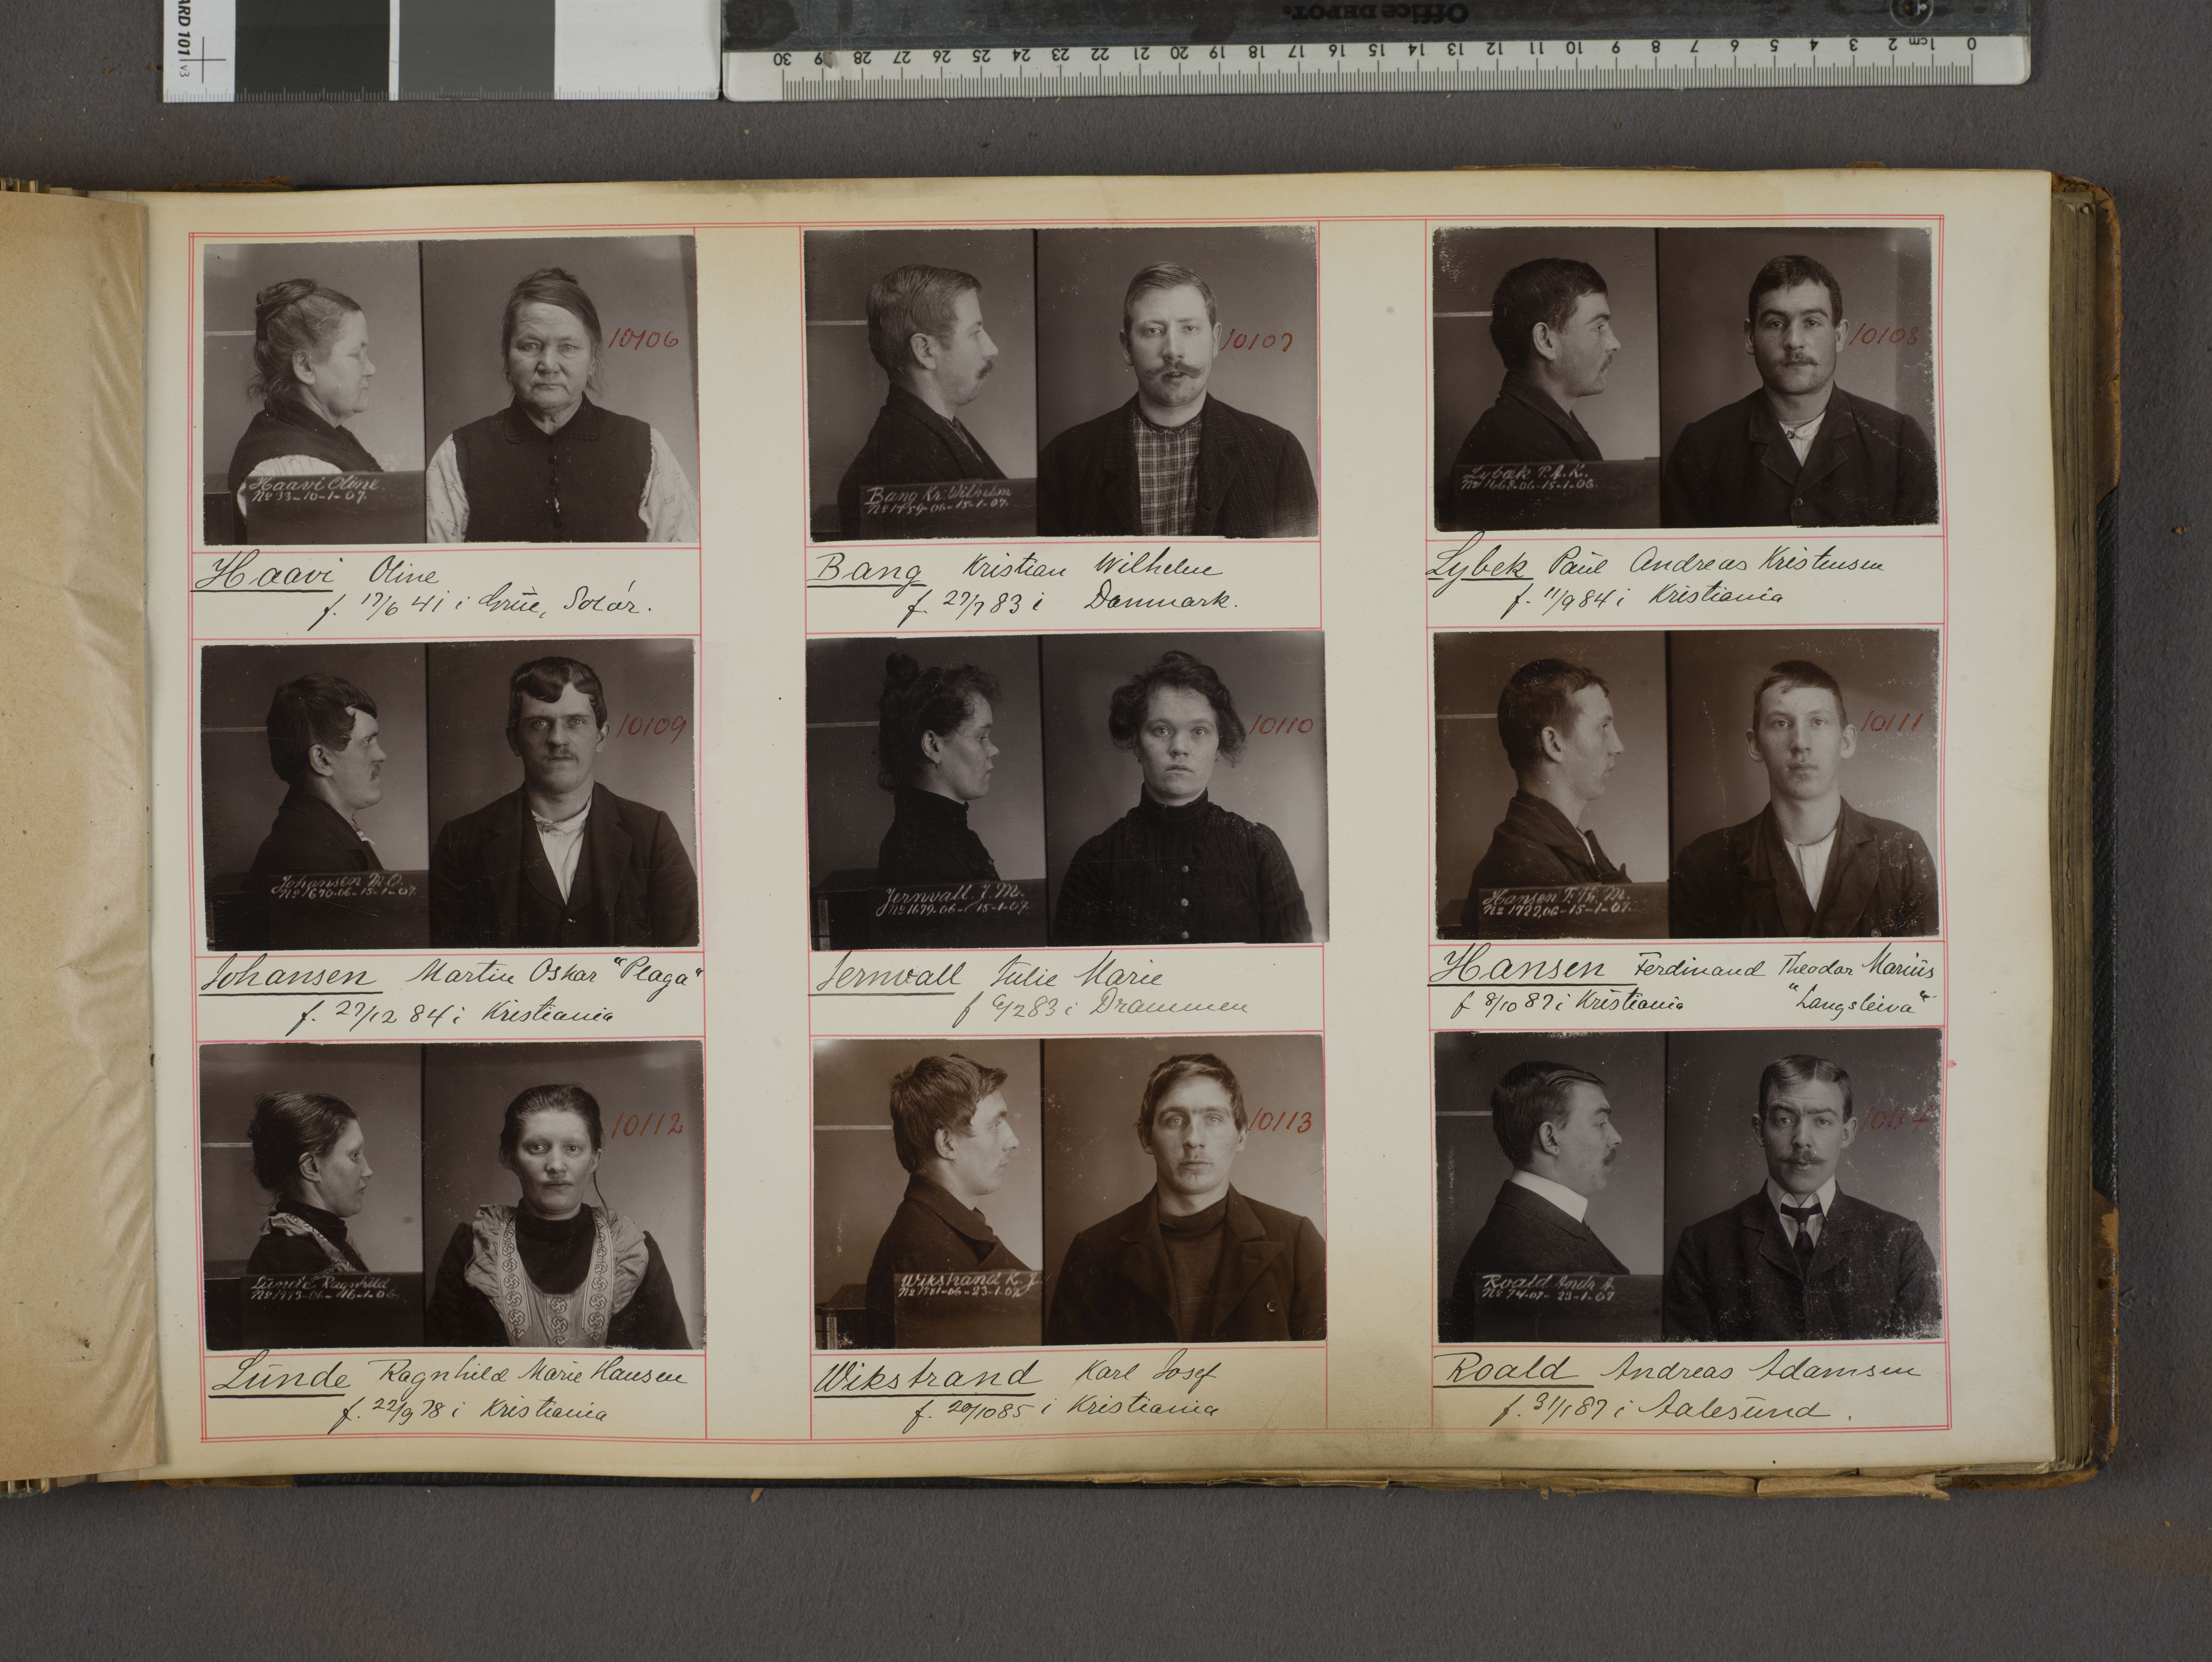 ARD 101 v3
Office DEPOT.
0 1cm 2 3 4 5 6 7 8 9 10 11 12 13 14 15 16 17 18 19 20 21 22 23 24 25 26 27 28 29 30
10106
Haavi Oline.
No 33-10-1-07.
Haavi Oline
f. 17/6 41 i Grue, Solør.
10107
Bang Kr. Wilhelm
No 1759-06-15-1-07.
Bang Kristian Wilhelm
f. 27/7 83 i Danmark.
10108
Lybæk P.A.K.
No 1668-06-15-1-06.
Lybek Paul Andreas Kristensen
f. 11/9 84 i Kristiania
10109
Johansen M.O.
No 1670-06-15-1-07.
Johansen Martin Oskar "Plaga"
f. 27/12 84 i Kristiania
10110
Jernvall. J. M.
No 1679-06-15-1-07.
Jernvall Julie Marie
f 6/2 83 i Drammen
10111
Hansen F. Th. M.
No 1722,06-15-1-07.
Hansen Ferdinand Theodor Marius
f 8/10 87 i Kristiania "Langsleiva"
10112
Lunde Ragnhild
No 1773-06-16-1-06.
Lunde Ragnhild Marie Hansen
f. 22/9 78 i Kristiania
10113
Wikstrand K. J.
No 1781-06-23-1-07.
Wikstrand Karl Josef
f. 20/10 85 i Kristiania
10114
Roald Andr. A.
No 74-07-23-1-07
Roald Andreas Adamsen
f. 31/1 87 i Aalesund.